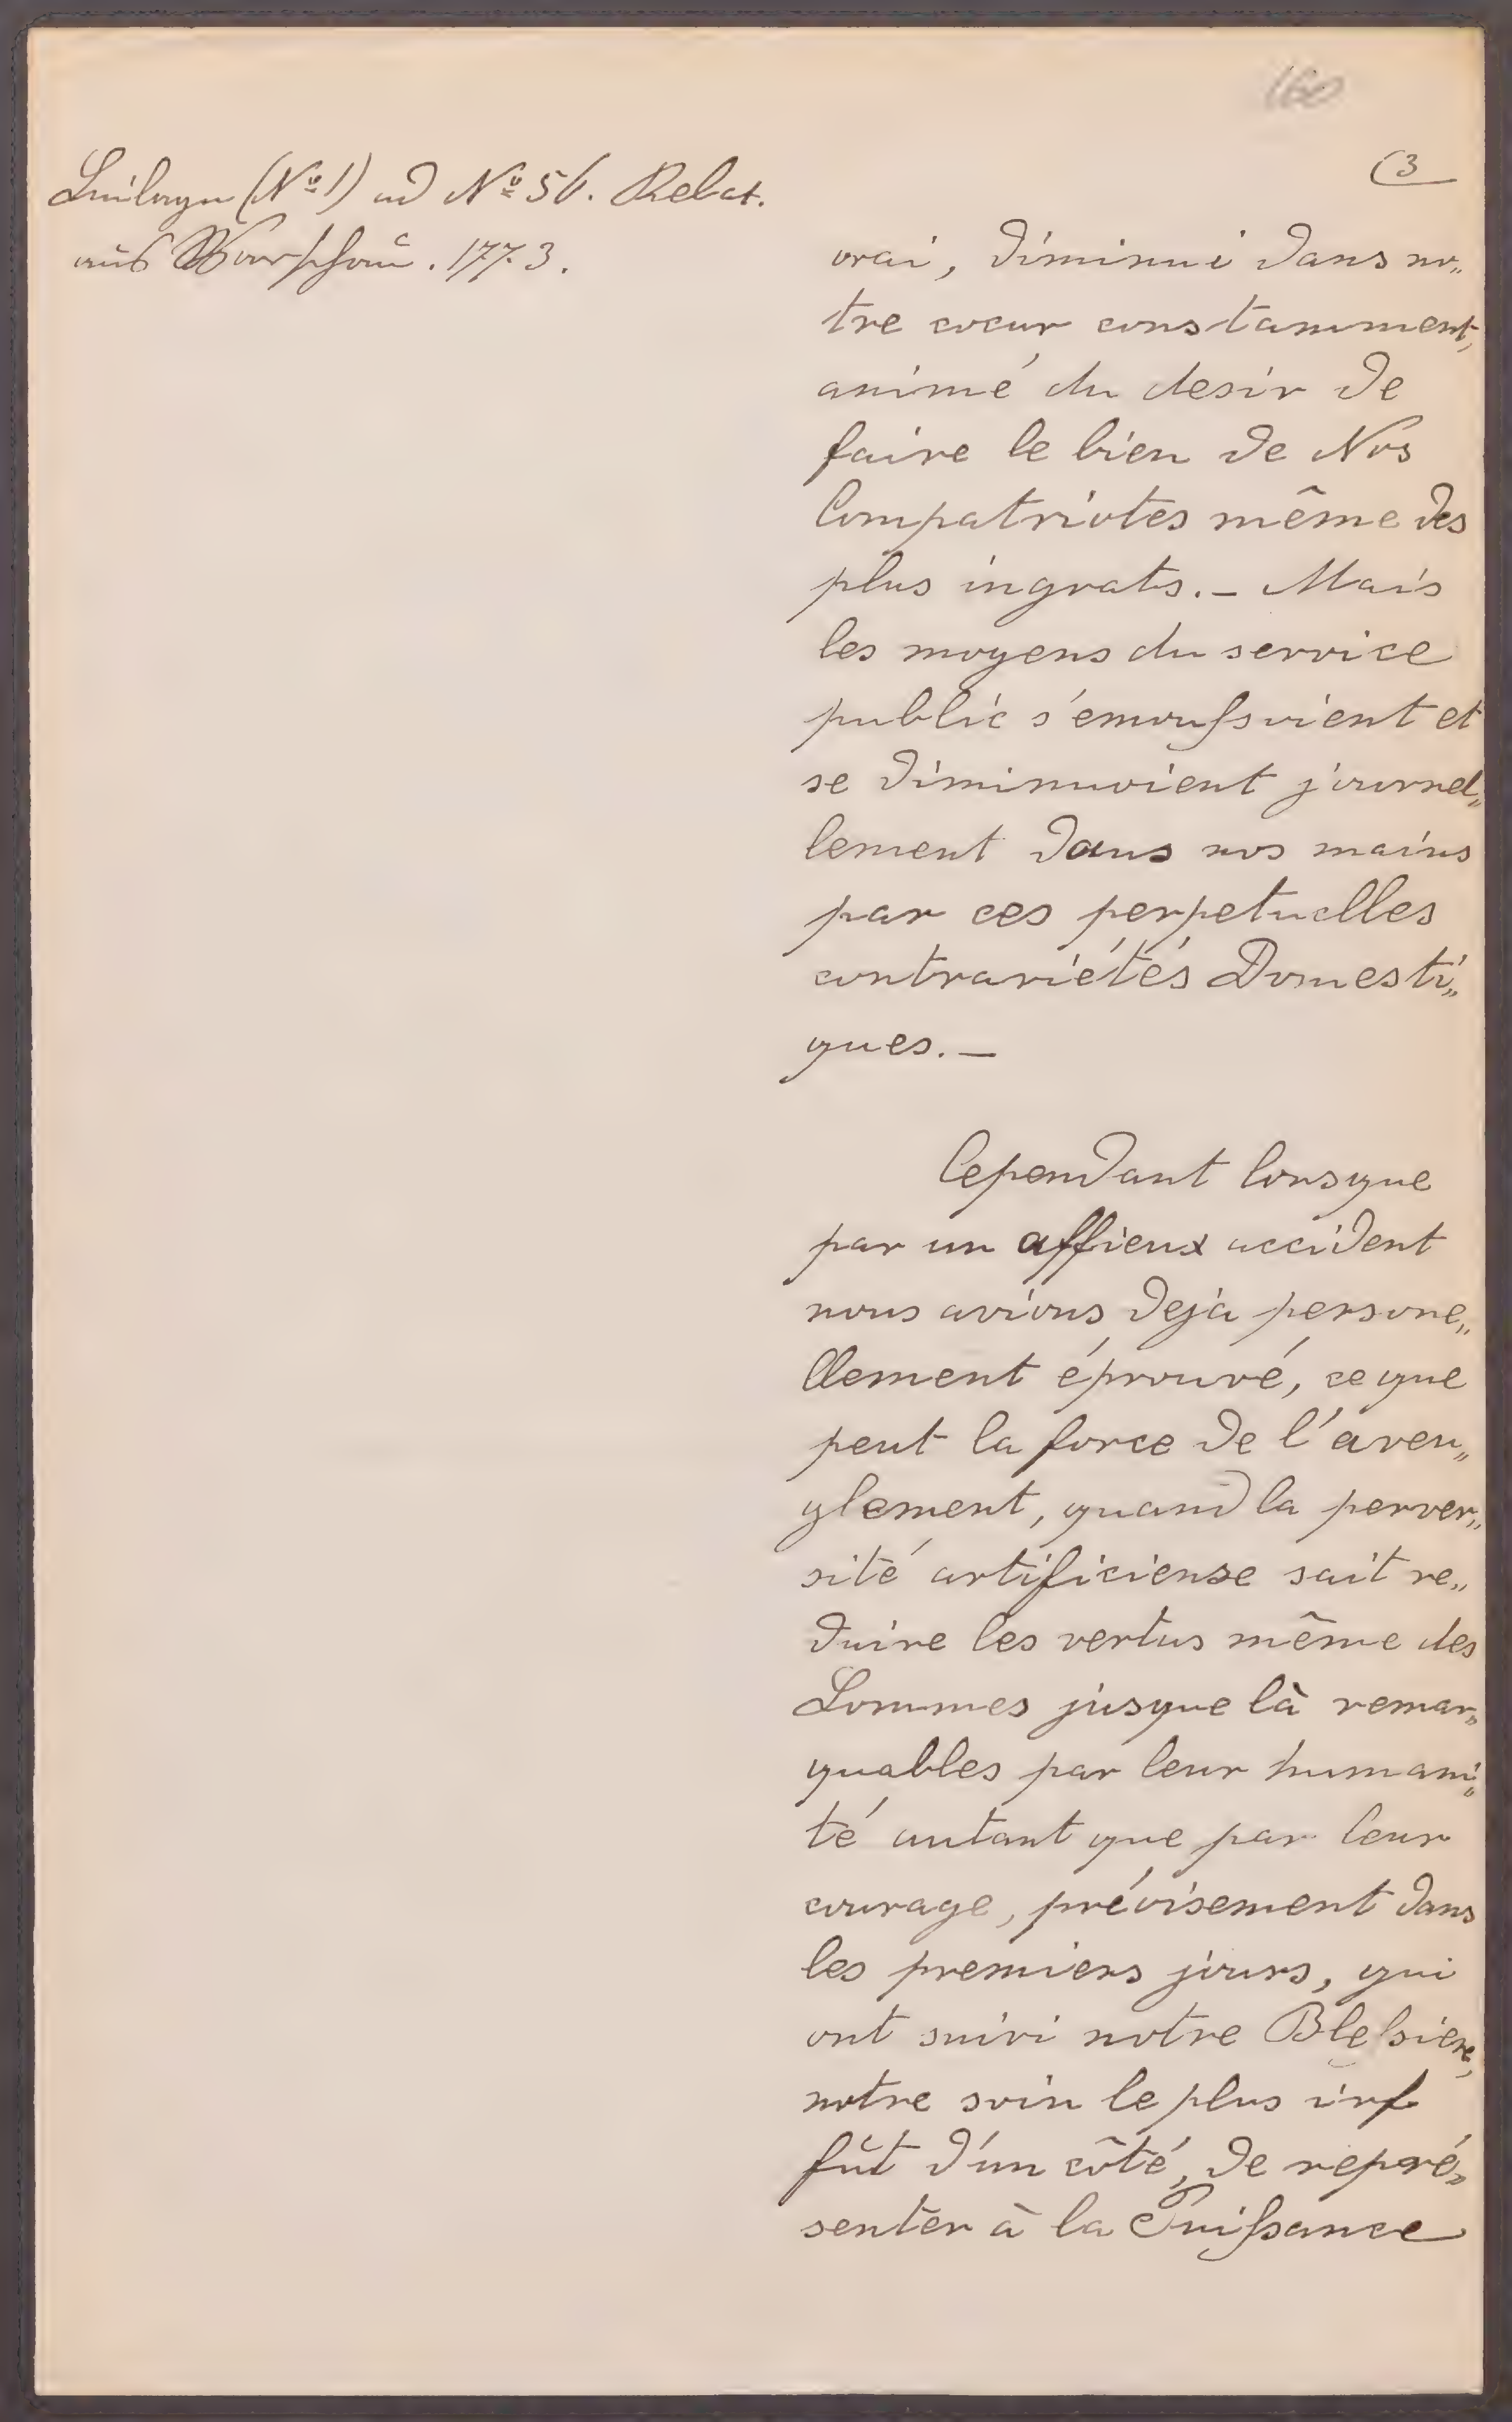 160
(3
Beilagen (Nº 1) ad Nº 56. Relat.
aus Warschau. 1773.
vrai, diminui dans no„
tre coeur constamment,
animé du desir de
faire le bien de Nos
Compatriotes même des
plus ingrats. – Mais
les moyens du service
public s'emoussoient et
se diminuoient journel„
lement dans nos mains
par ces perpetuelles
contrariétés Domesti„
ques. –
Cependant lorsque
par un affieux accident
nous avions deja persone„
llement éprouvé, ce que
peut la force de l'aveu„
glement, quand la perver„
sité artificieuse sait re„
duire les vertus même des
Hommes jusque là remar„
quables par leur humani„
té autant que par leur
courage, précisement dans
les premiers jours, qui
ont suivi notre Blessiere,
notre soin le plus
fût d'un côté, de repré„
senter à la Puissance